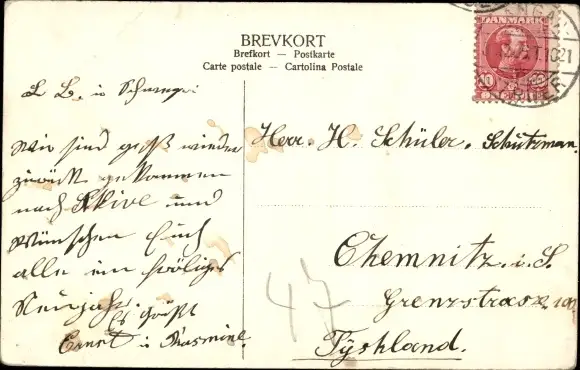 BREVKORT
Brefkort — Postkarte
Carte postale — Cartolina Postale
DANMARK
10
L L. u
wir sind groß wieder
zurück gekommen
nach Skive und
Wünschen Euch
alle ein fröliges
Neujahr.
Es Grüßt
Ernst u Rasmine.
Herr. H. Schüler. Schutzman.
Chemnitz. i. S.
Grenzstrasse
Tyskland.
47